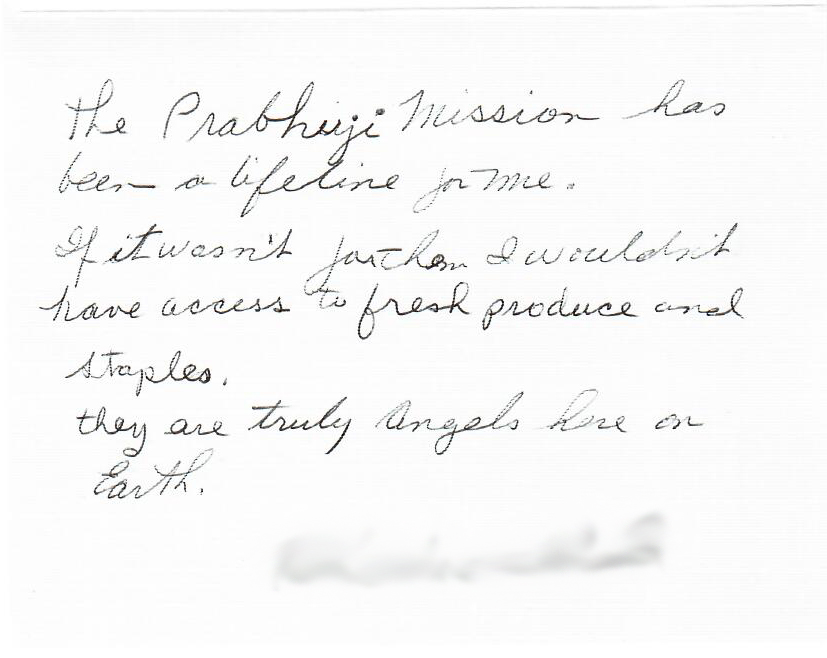 the Prabhuji Mission has
been a lifeline for me.
If it wasn't for them I wouldn't
have access to fresh produce and
staples.
they are truly Angels here on
Earth.